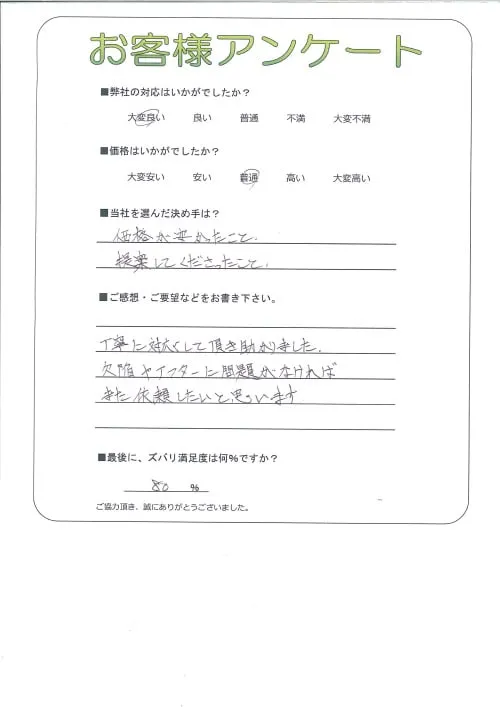 お客様アンケート
■弊社の対応はいかがでしたか？
大変良い 良い 普通 不満 大変不満
■価格はいかがでしたか？
大変安い 安い 普通 高い 大変高い
■当社を選んだ決め手は？
価格が安かったこと.
提案してくださったこと.
■ご感想・ご要望などをお書き下さい。
丁寧に対応して頂き助かりました.
欠陥やアフターに問題がなければ
また依頼したいと思います
■最後に、ズバリ満足度は何％ですか？
80 ％
ご協力頂き、誠にありがとうございました。